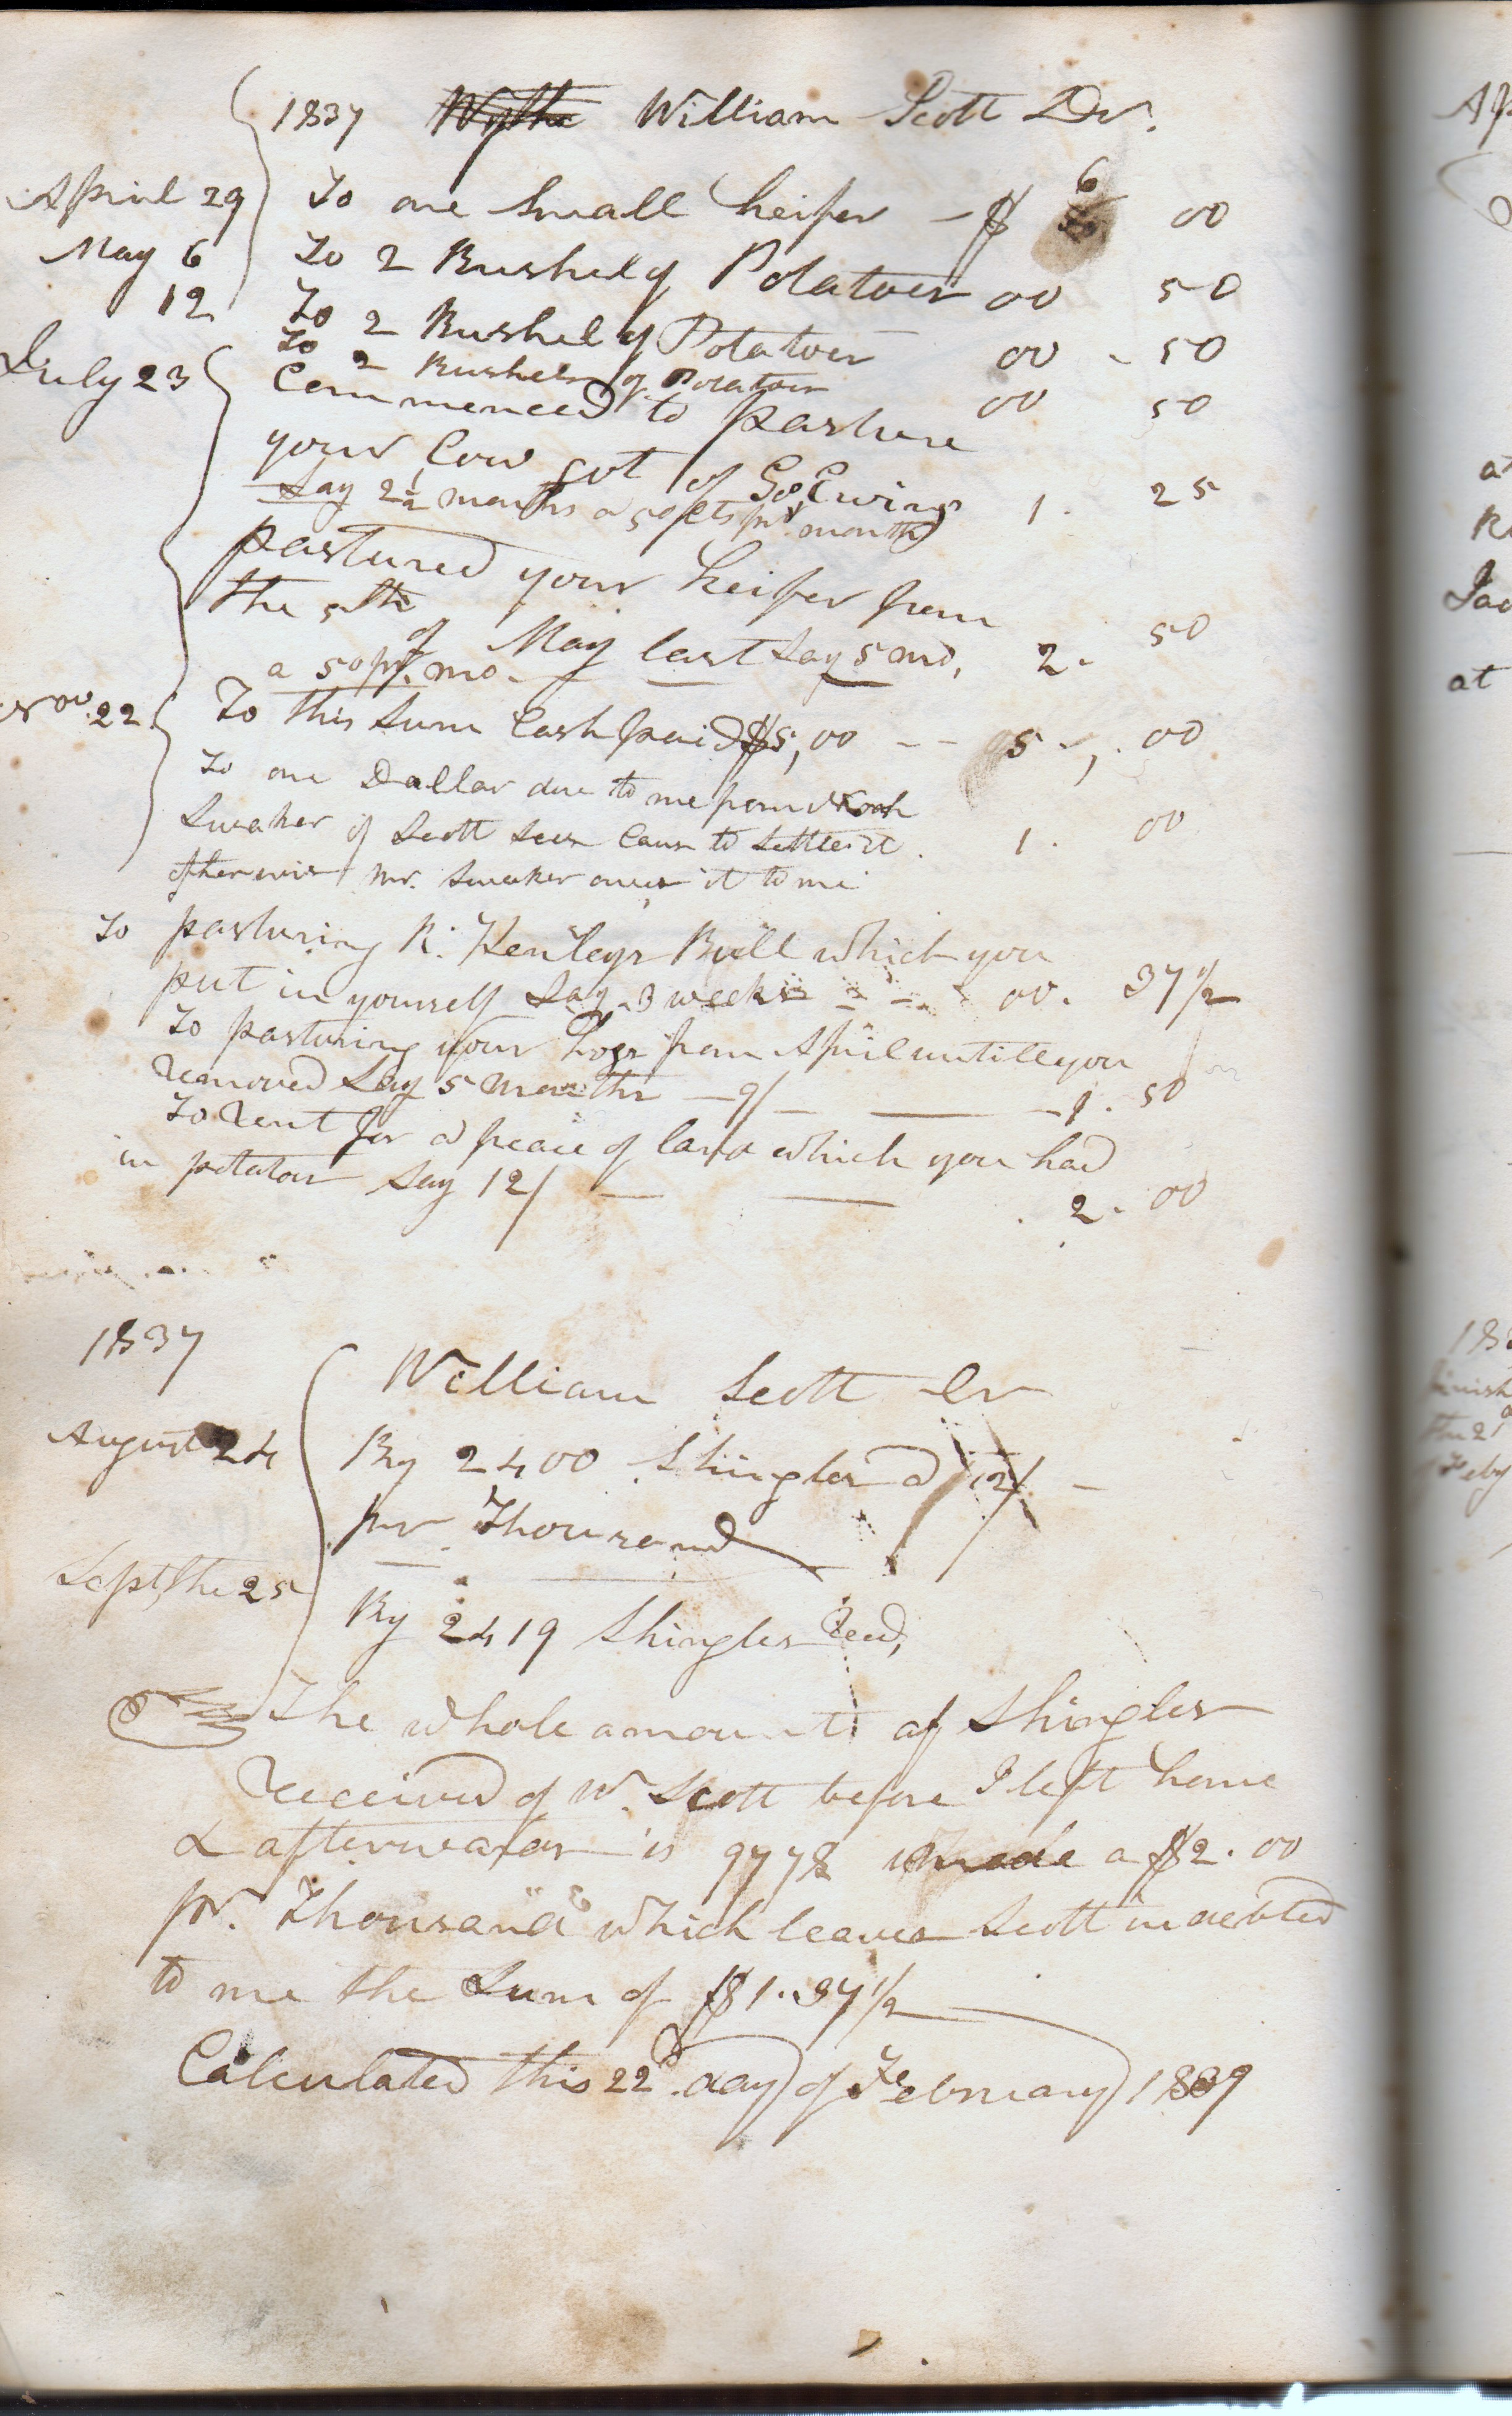 1837 William Scott Dr.
April 29 To one small heifer - $ 6 00
May 6 To 2 Bushel of Potatoes 00 50
12 To 2 Bushel of Potatoes 00 - 50
To 2 Bushels of Potatoes 00 50
July 23 Commenced to pasture
your Cow got of Go. Ewing
Say 2½ months a 50 cts pr month 1. 25
pastured your heifer from
the 5th
of May last Say 5 mo, 2. 50
a 50 pr. mo.
Nov. 22 To this Sum Cash paid $5,00 -- 5 -,. 00
To one Dollar due to me from
Swaker if Scott sees Caus to Settle it. 1. 00
otherwis Mr. Swaker owes it to me
To pasturing R. Henleys Bull which you
put in yourself Say 3 weeks - - - 00. 37½
To pasturing your hogs from April untill you
removed Say 5 Months — 9/ — — 1. 50
To Rent for a peace of land which you had
in potatoes Say 12/ — — 2. 00
1837
William Scott Cr
August 24 By 2400 Shingles a 12/ -
pr Thousand
Septthe 25 By 2419 Shingles Recd,
The whole amount of Shingles
Received of W. Scott before I left home
& afterwards is 9778 a $2.00
pr. Thousand which leaves Scott indebted
to me the Sum of $1.37½
Calculated this 22d day of February 1839
Ap
at
R
Jac
at
183
finish
the 2
Feby